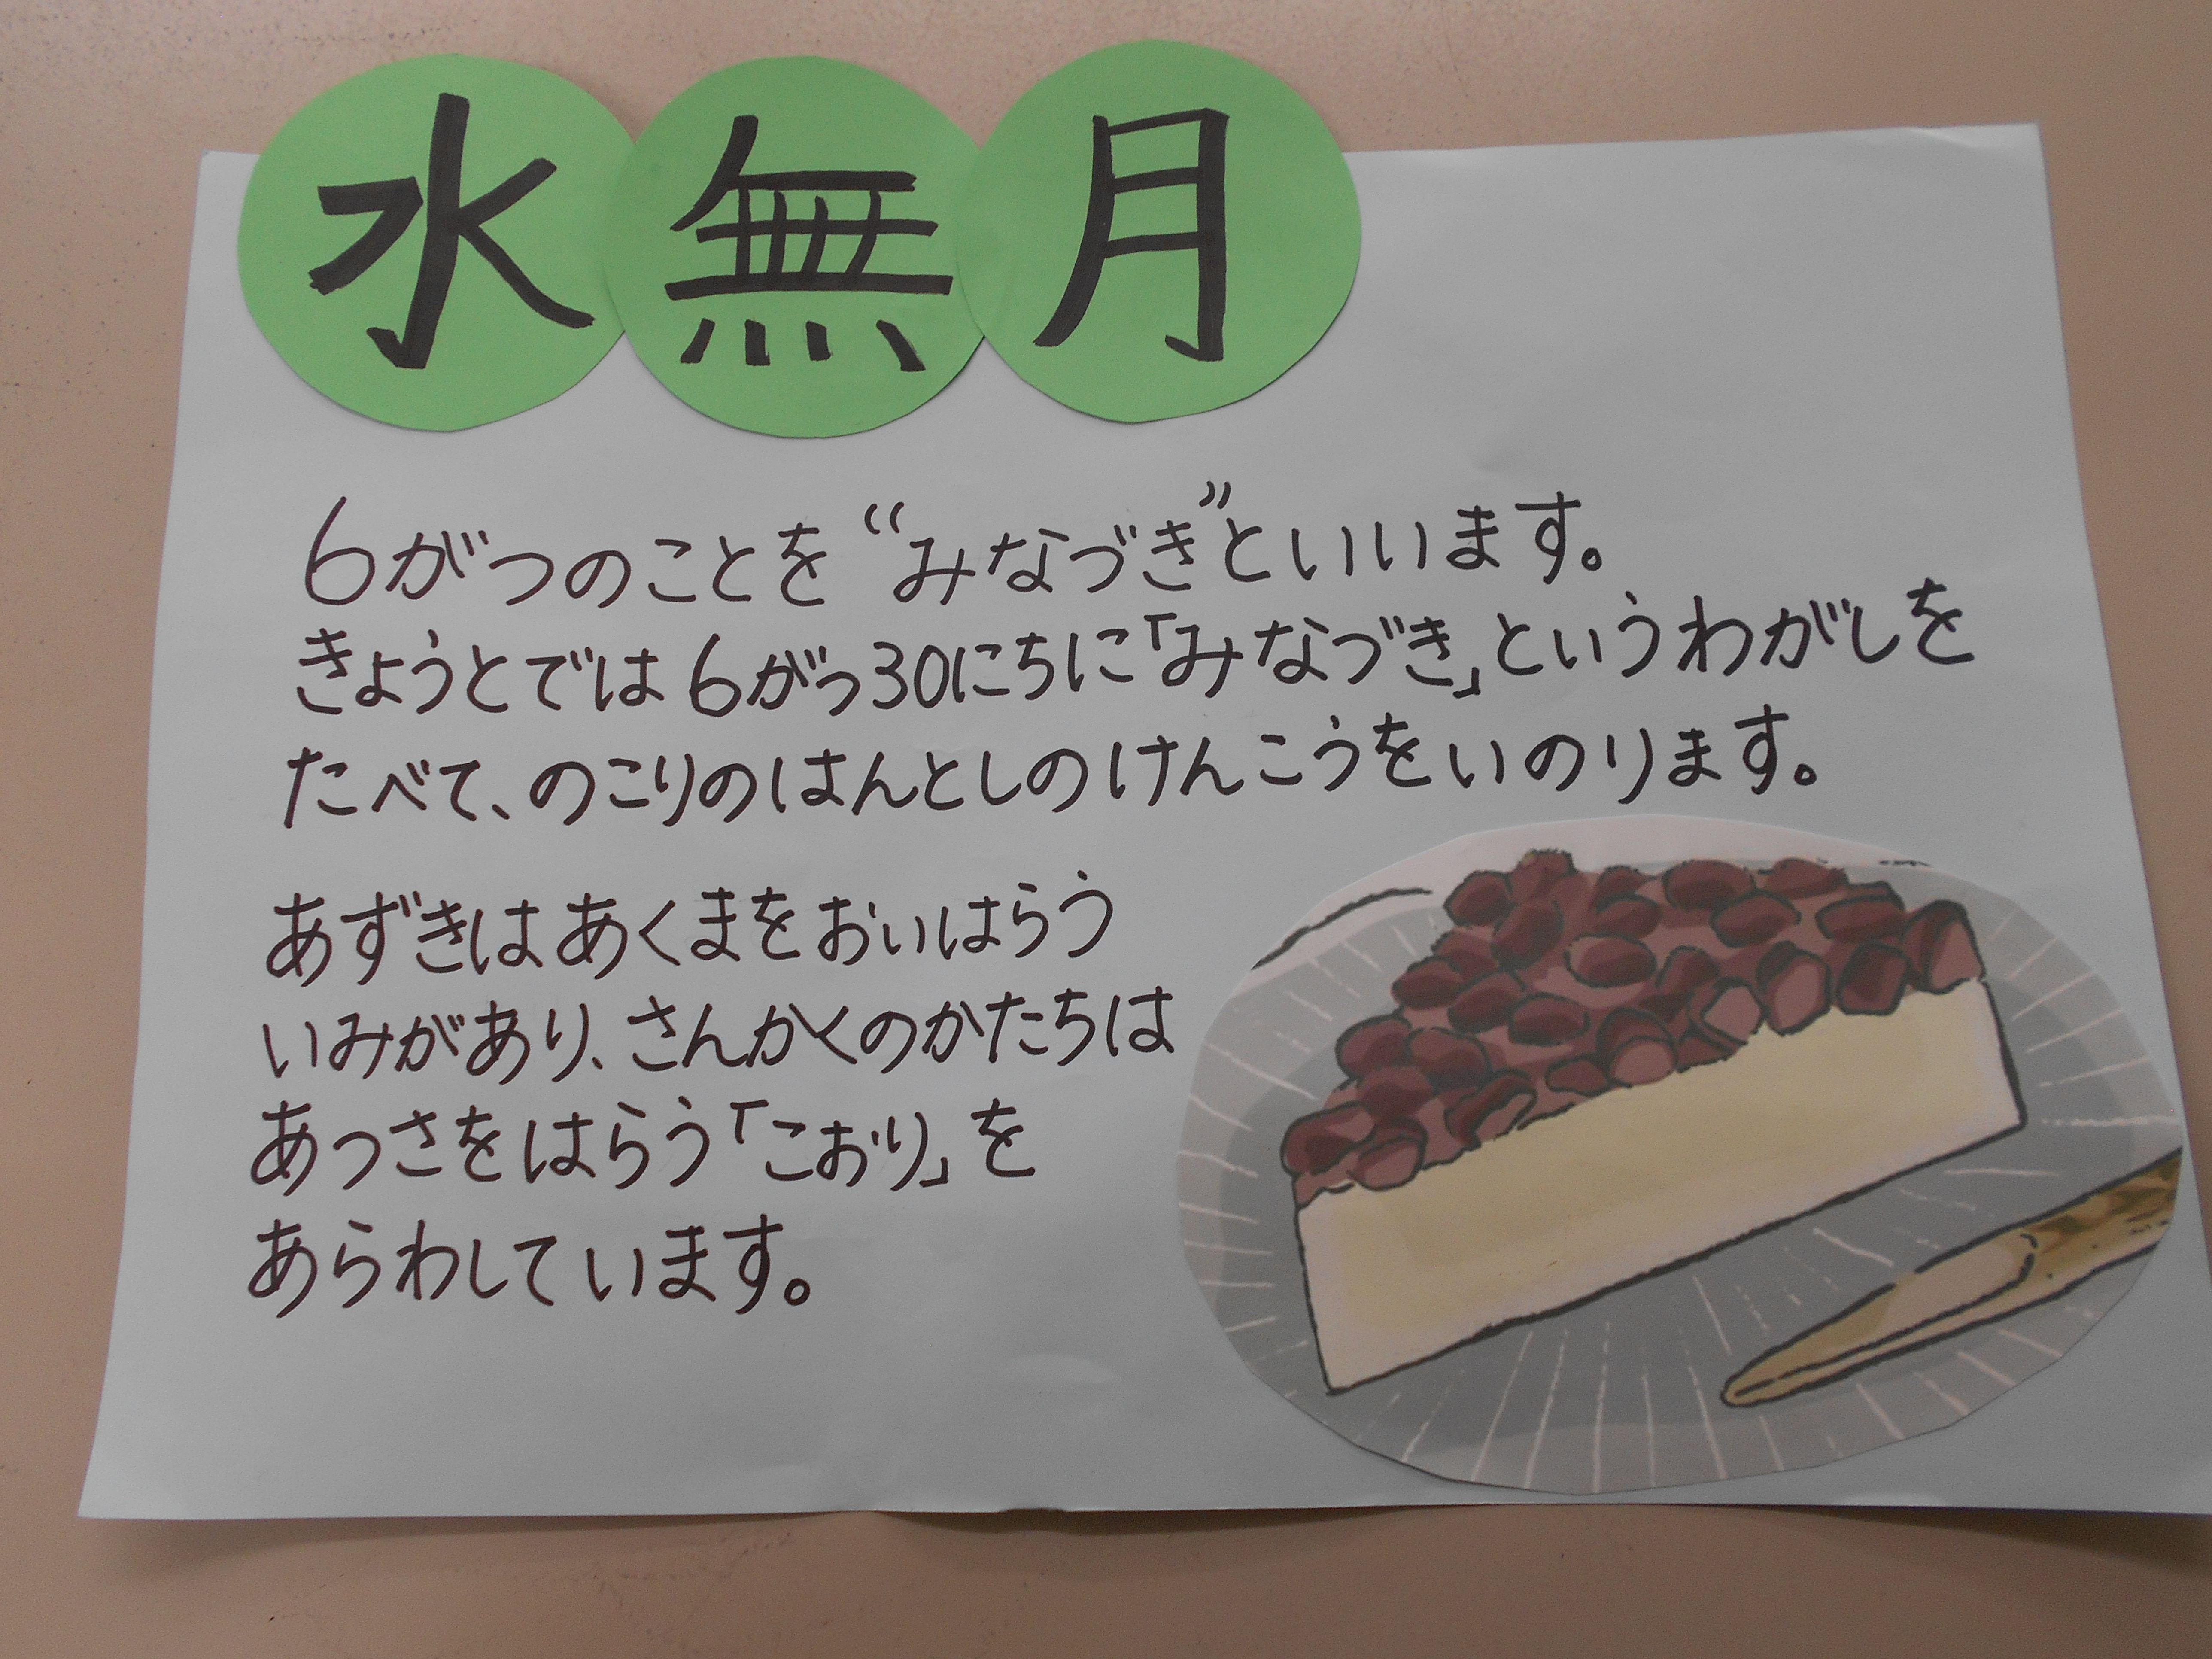 水無月
6がつのことを“みなづき”といいます。
きょうとでは6がつ30にちに「みなづき」というわがしを
たべて、のこりのはんとしのけんこうをいのります。
あずきはあくまをおいはらう
いみがあり、さんかくのかたちは
あつさをはらう「こおり」を
あらわしています。